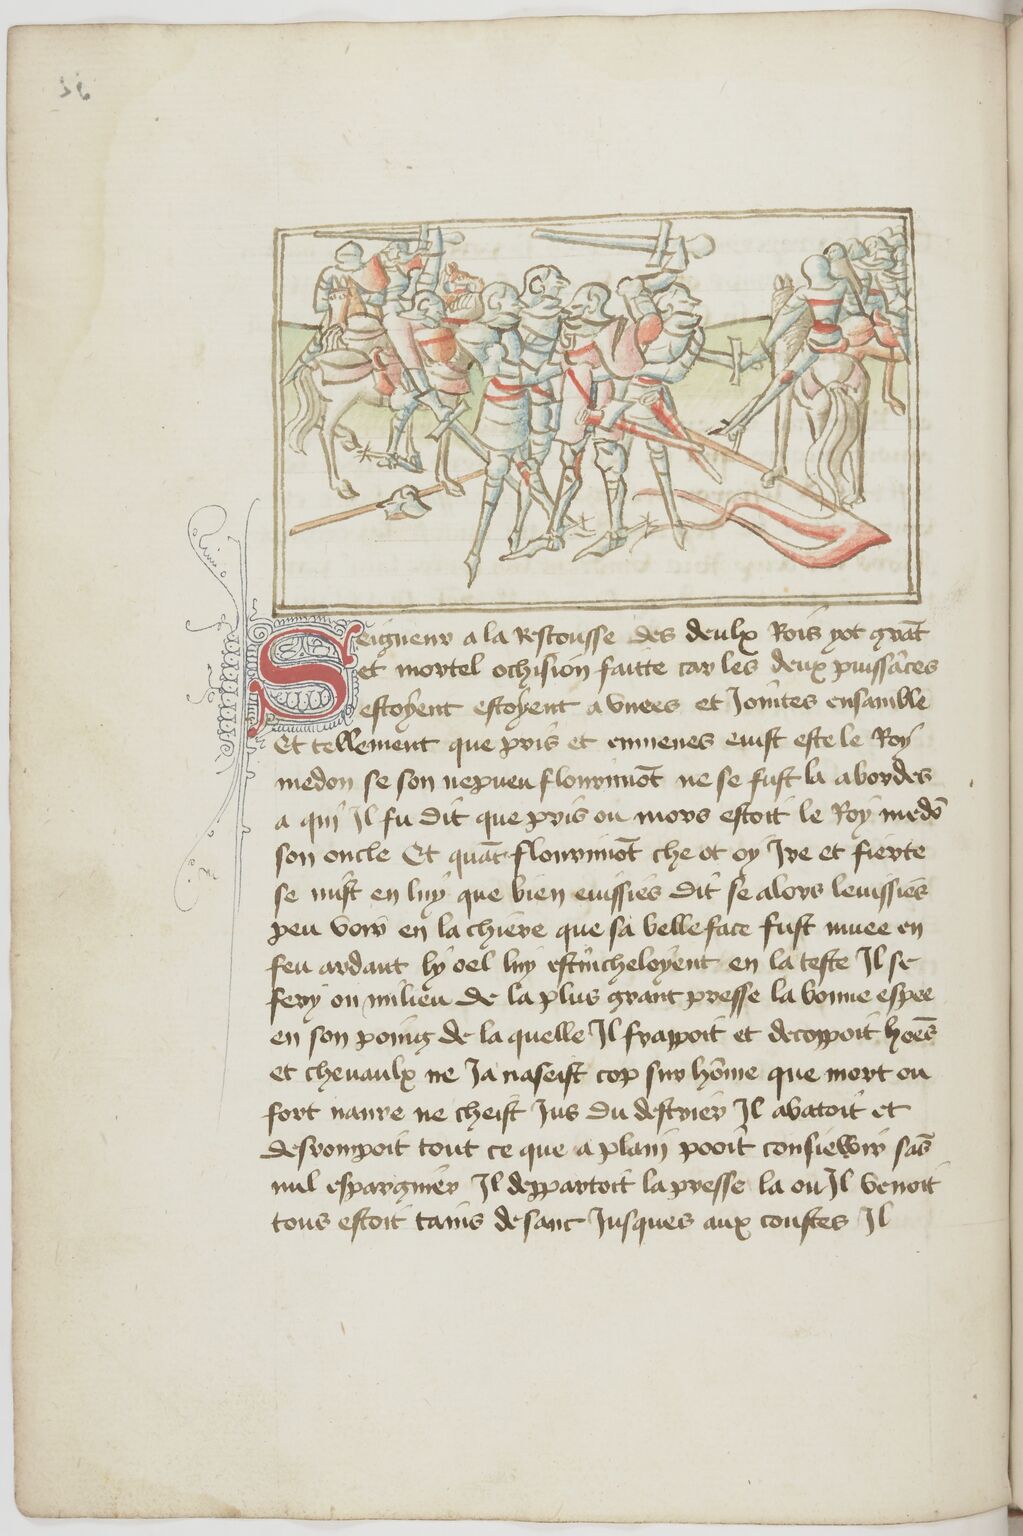 36
Seigneur a la Rescousse des deulx Rois yot grãt
et mortel ochision faitte car les deux puissãces
estoyent estoyent a vnees et Jointes ensamble
Et tellement que pris et emmenes euist este le Roy
medon se son nepueu flourimõt ne se fust la abordes
a qui Il fu dit que pris ou mors estoit le Roy medõ
son oncle Et quãt flourimõt che ot oy Ire et fierte
se mist en luy que bien euissies dit se alors leuissies
peu voir en la chiere que sa belle face fust muee en
feu ardant ly oel luy estincheloyent en la teste Il se
fery ou milieu de la plus grant presse la bonne espee
en son poing de la quelle Il frappoit et decoppoit hoẽs
et cheuaulx ne Ja naseist cop sur hõme que mort ou
fort naure ne cheist Jus du destrier Il abatoit et
desrompoit tout ce que a plain pooit consiewir sãs
nul espargnier Il deppartoit la presse la ou Il venoit
tous estoit tains de sanc Jusques aux coustes Il